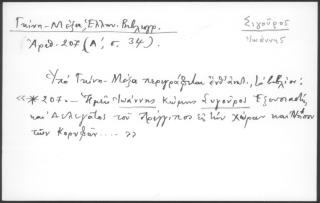 Γκίνη - Μέξα, Ἑλλην. Βιβλιογρ.
Ἀριθ. 207 (Α', σ. 34).
Σιγοῦρος
Ἰωάννης
Ὑπό Γκίνη - Μέξα περιγράφεται
«*207.— Ἡμεῖς Ἰωάννης Κώμης Συγοῦρος Ἐξουσιαστὴς
καὶ Δελεγάτος τοῦ Πρίγγιπος εἰς τὴν Χώραν καὶ Νῆσον
τῶν Κορυφῶν.... »